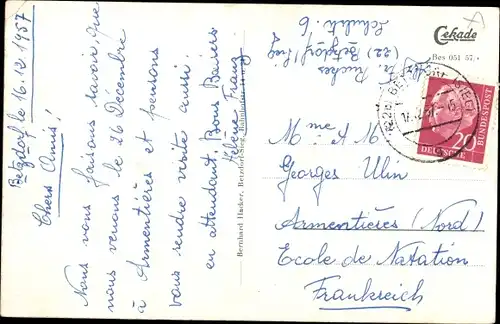 Betzdorf le 16.12.1957
Chers Amis!
Nous vous faisons savoir, que
nous venons le 26 Décembre
à Armentières et pensons
vous rendre visite aussi
en attendant, Bons Baisers
Helene Franz
Bernhard Hacker, Betzdorf-Sieg, Bahnhofstr.
Cekade
Bes 051 57.
(22) Betzdorf/Sieg
Schulstr. 6
BETZDORF (SIEG)
DEUTSCHE BUNDESPOST
20
Mme & M
Georges Ulin
Armentières (Nord)
Ecole de Natation
Frankreich